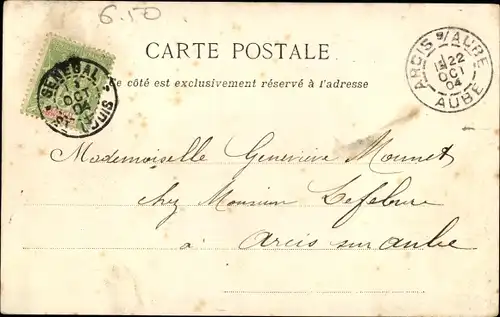 6.50
CARTE POSTALE
Ce côté est exclusivement réservé à l'adresse
SENEGAL
OCT
04
ST LOUIS
ARCIS S/AUBE
22
OCT
04
AUBE
Mademoiselle Geneviève Monnet
chez Monsieur Lefebure
à Arcis sur aube